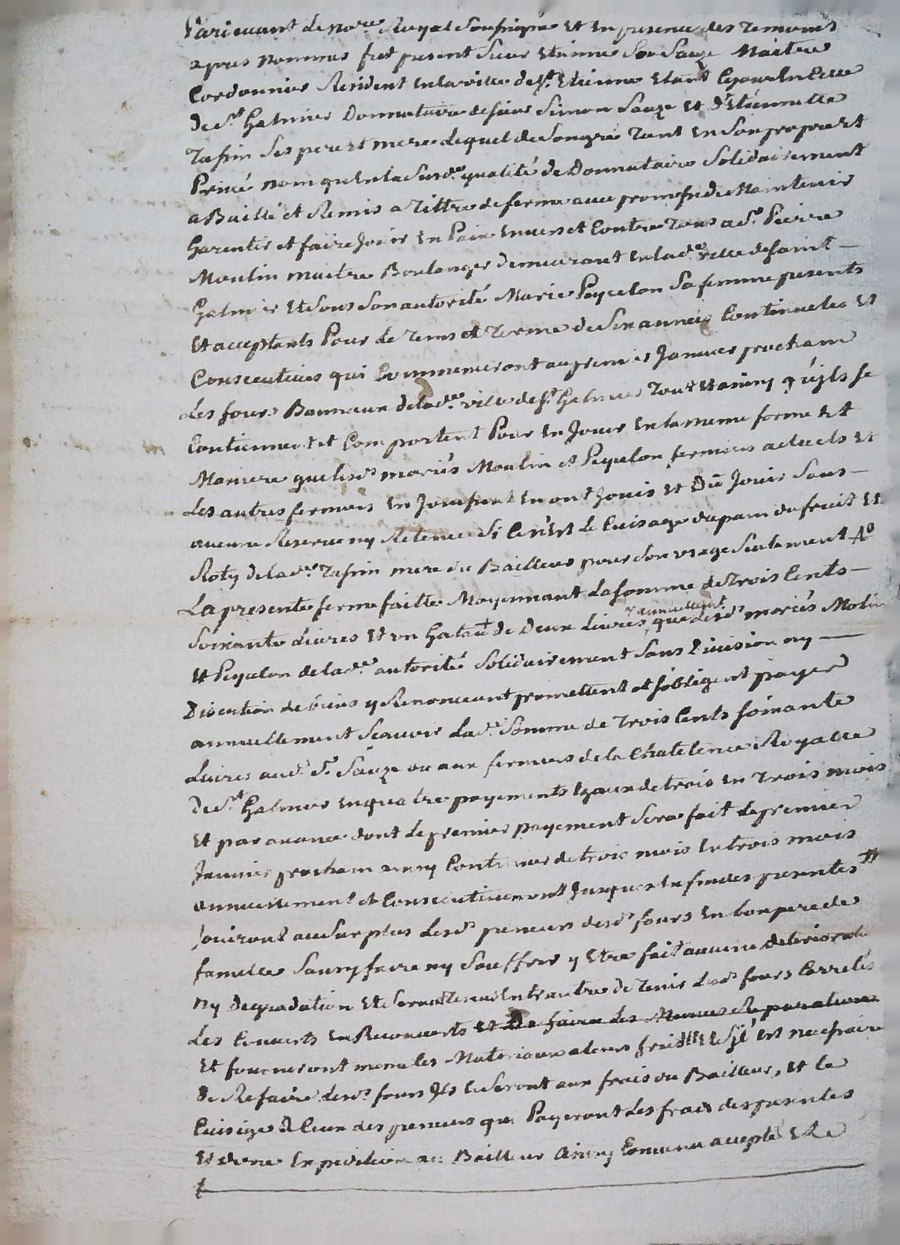 Pardevant le no.re Royal Soussigné et en presence des temoins
apres nommés fut present Sieur Etienne Sauze Maitre
Cordonnier Resident en la ville de St. Etienne Etant Ce jour En Celle
De St. Galmier Donnataire de sieur Simon Sauze et d'Etiennette
Tassin Ses pere et mere Lequel de Son gré tant en Son propre Et
Privé nom qu'En la Susd.e qualité de Donnataire Solidairement
a Baillé et Remis a tittre de ferme avec promesse de Maintenir
Garentir et faire Jouir En Paix Envers et Contre Tous a Sr. Pierre
Moulin maitre Boulanger demeurant En lad.e ville de saint
Galmier Et Sous Son autorité Marie Peycelon Sa femme presents
Et acceptants Pour Le Tems et Terme de Six années Continuelles Et
Consecutives qui Commenceront au premier Janvier prochain
Les fours Bannaux de lad.e ville de St. Galmier Tout Et ainsy qu'ils Se
Contiennent et Comportent Pour En Jouir En la meme forme Et
Maniere que lesd.s mariés Moulin et Peycelon fermiers actuels Et
Les autres fermiers En Jouissent En ont Jouis et Dû Jouir Sans
aucune Reserve ny Retenue Si Ce n'Est Le Cuisage du pain du fruit Et
Roty de lad.e Tassin mere du Bailleur pour Son usage Seulement
La presente ferme faitte Moyennant La somme de trois Cents
Soixante Livres Et un Gateau de Deux Livres annuellement que lesd.s mariés Molin
Et Peycelon de lad.e autorité Solidairement Sans Division ny
Discution de biens y Renonceant promettent et s'obligent payer
annuellement Scavoir La d.e Somme de trois Cents soixante
Livres aud. Sr. Sauze ou aux fermiers de la Chatelenie Royalle
De St. Galmier En quatre payements Egaux de trois En trois mois
Et par avance dont Le premier payement Sera fait Le premier
Janvier prochain ainsy Continuer de trois mois En trois mois
annuellement et Consecutivement Jusques En fin des presentes
Jouiront au Surplus Lesd.s preneurs desd.s fours En bon pere de
famille Sans y faire ny Souffrir y Etre fait aucune deterioration
Ny Degradation Et Seront tenus de Tenir Lesd.s fours Carrelés
Les Couverts En Recouverts Et De faire Les Menues Reparations
Et fourniront meme les Materiaux a leurs frais Et S'il Est necessaire
De Refaire lesd.s fours Ils le Seront aux frais du Bailleur, Et le
Cuisage a Ceux des preneurs qui Payeront Les frais des presentes
Et d'une Expedition au Bailleur Ainsy Convenu accepté Et